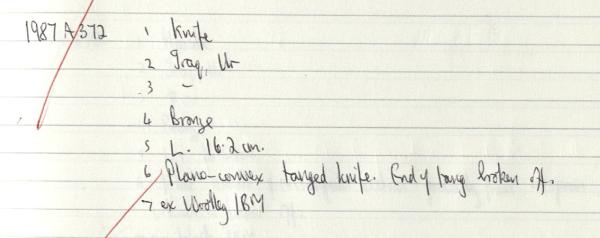 1987 A 372 1 Knife
2 Iraq, Ur
3 –
4 Bronze
5 L. 16.2 cm.
6 Plano-convex tanged knife. End of tang broken off.
7 ex Woolley / BM